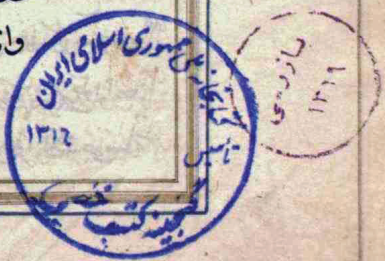 وا
کتابخانه ملی جمهوری اسلامی ایران
۱۳۱۶
تأسیس
گنجینه کتب
بازرسی
۱۳۱۹